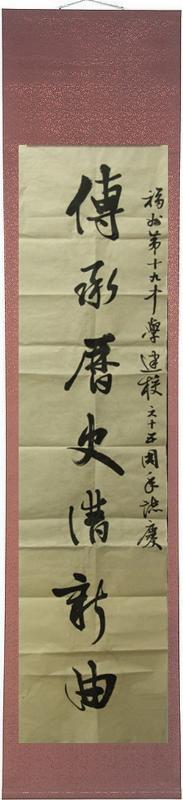 福州第十九中學建校六十五周年誌慶
傳承曆史譜新曲